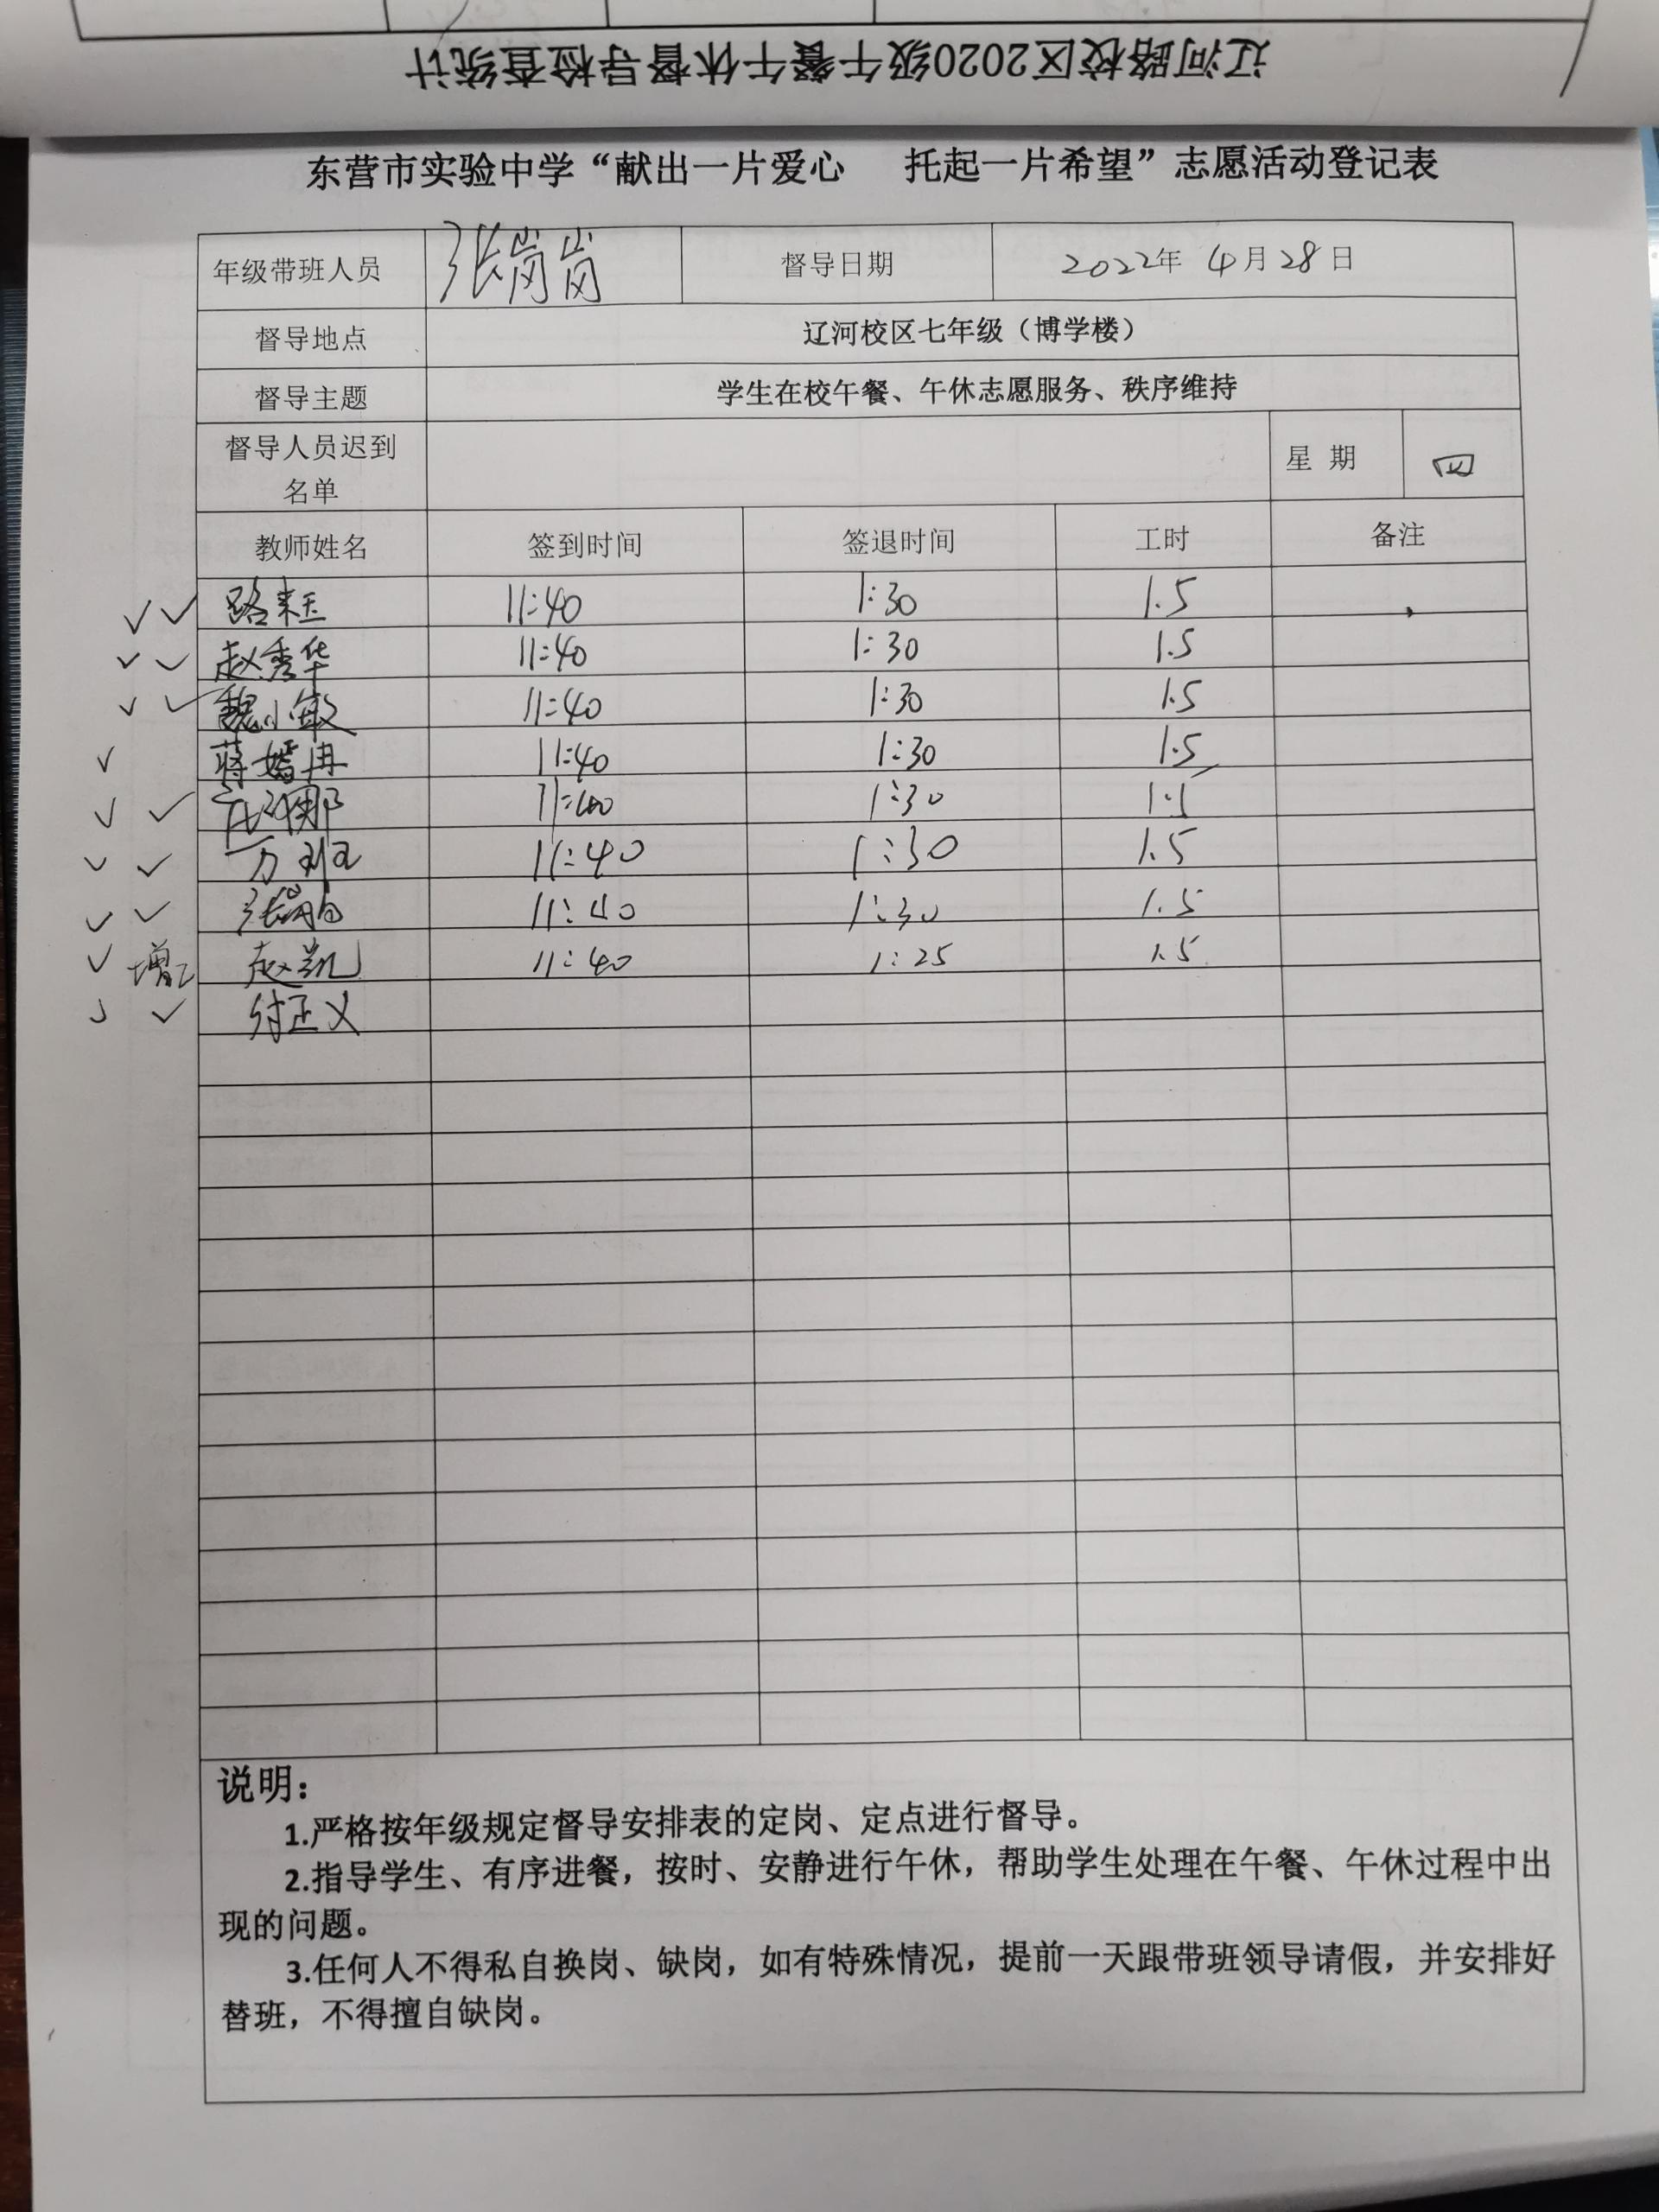 辽河路校区2020级午餐午休督导检查统计
东营市实验中学“献出一片爱心 托起一片希望”志愿活动登记表
年级带班人员 张岗岗 督导日期 2022年 4月28日
督导地点 辽河校区七年级（博学楼）
督导主题 学生在校午餐、午休志愿服务、秩序维持
督导人员迟到
名单
星 期 四
教师姓名 签到时间 签退时间 工时 备注
11:40 1:30 1.5
赵秀华 11:40 1:30 1.5
魏小敏 11:40 1:30 1.5
蒋嫣冉 11:40 1:30 1.5
11:40 1:30 1.5
万班 11:40 1:30 1.5
11:40 1:30 1.5
赵凯 11:40 1:25 1.5
付正义
说明：
1.严格按年级规定督导安排表的定岗、定点进行督导。
2.指导学生、有序进餐，按时、安静进行午休，帮助学生处理在午餐、午休过程中出
现的问题。
3.任何人不得私自换岗、缺岗，如有特殊情况，提前一天跟带班领导请假，并安排好
替班，不得擅自缺岗。